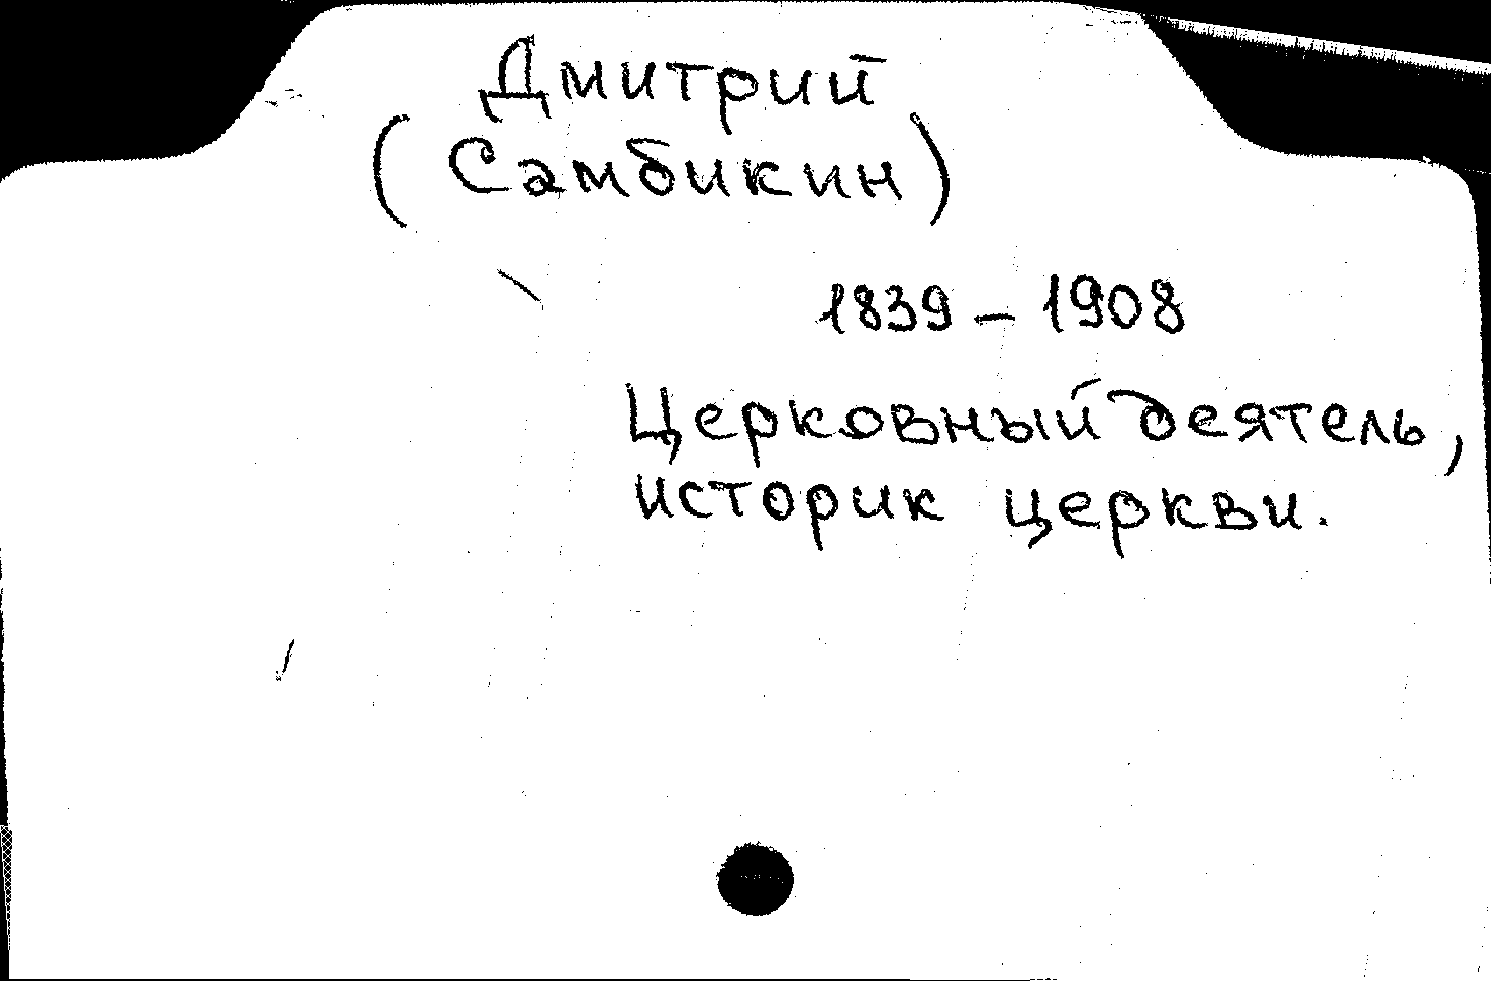 Дмитрий
(Самбикин)
1839 – 1908
Церковный деятель,
историк церкви.